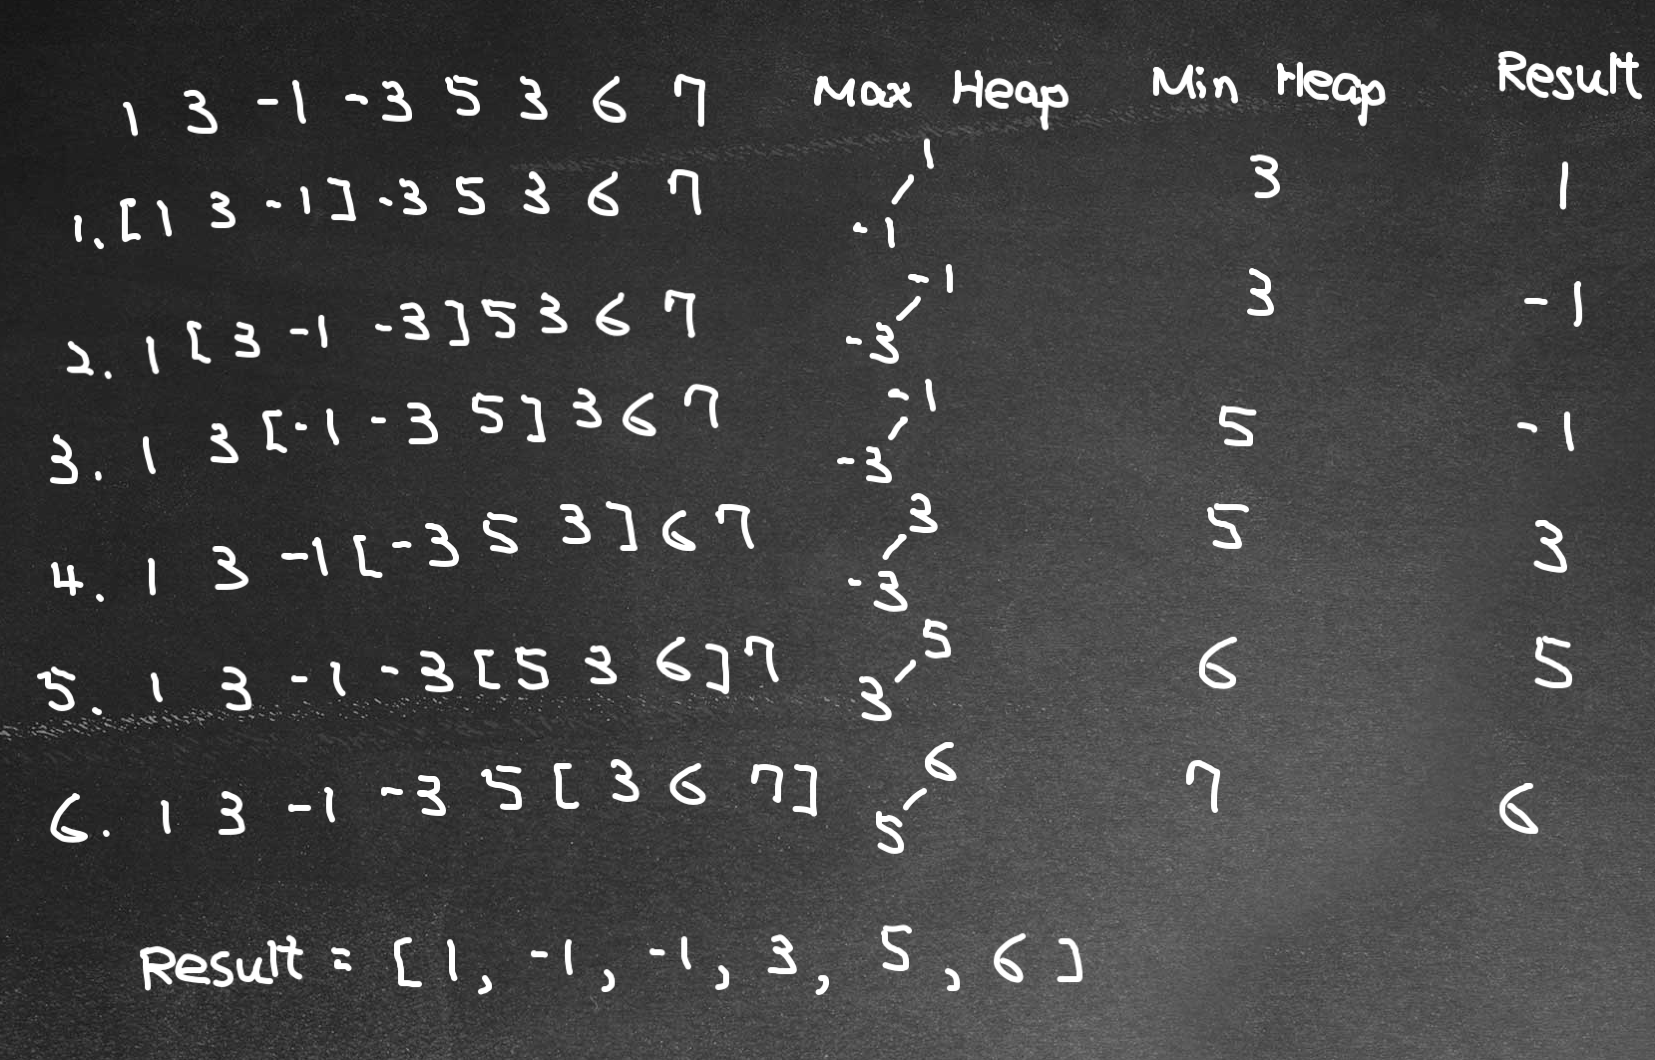 1 3 -1 -3 5 3 6 7 Max Heap Min Heap Result
1. [1 3 -1] -3 5 3 6 7 1 -1 3 1
2. 1 [3 -1 -3] 5 3 6 7 -1 -3 3 -1
3. 1 3 [-1 -3 5] 3 6 7 -1 -3 5 -1
4. 1 3 -1 [-3 5 3] 6 7 3 -3 5 3
5. 1 3 -1 -3 [5 3 6] 7 5 3 6 5
6. 1 3 -1 -3 5 [3 6 7] 6 5 7 6
Result = [1, -1, -1, 3, 5, 6]